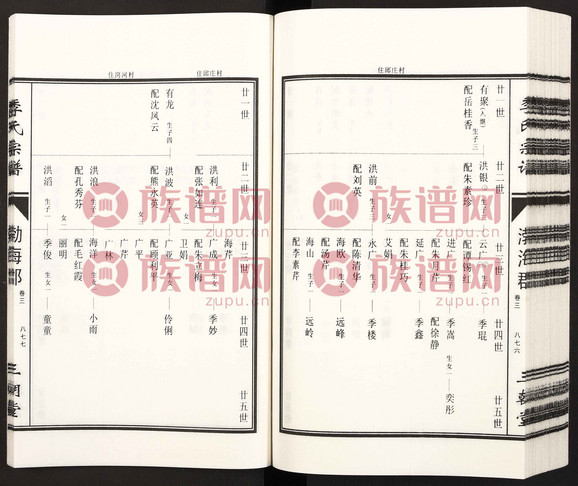 住邱庄村
廿一世
廿二世
廿三世
廿四世
廿五世
有聚(入继)生子三
配岳桂香
洪银 生子三
配朱素珍
云广 生子一
季琨
配谭锡红
进广 生子一
季嵩 生女一
奕彤
配朱月芹
配徐静
延广 生子一
季鑫
配朱桂巧
艾娟
洪前 生子三
配刘英
永广 生子一
季楼
配陈清华
海欧 生子一
远峰
配汤芹
海山 生子一
远岭
配李素芹
季氏宗谱
渤海郡
卷三
八七六
三朝堂
住邱庄村
住岗河村
廿一世
廿二世
廿三世
廿四世
廿五世
有龙 生子四
配沈凤云
洪利 生子一 女二
配张如连
海芹
广成 生子一
季妙
配朱立梅
卫娟
洪波 生子一 女三
配熊水英
广亚 生女一
伶俐
配顾利
广平
广芹
广林
洪浪 生子一 女二
配孔秀芬
海洋 生女一
小雨
配毛红霞
丽明
洪滔 生子一
季俊 生女一
童童
季氏宗谱
渤海郡
卷三
八七七
三朝堂
族谱网
zupu.cn
族谱网
zupu.cn
族谱网
zupu.cn
族谱网
zupu.cn